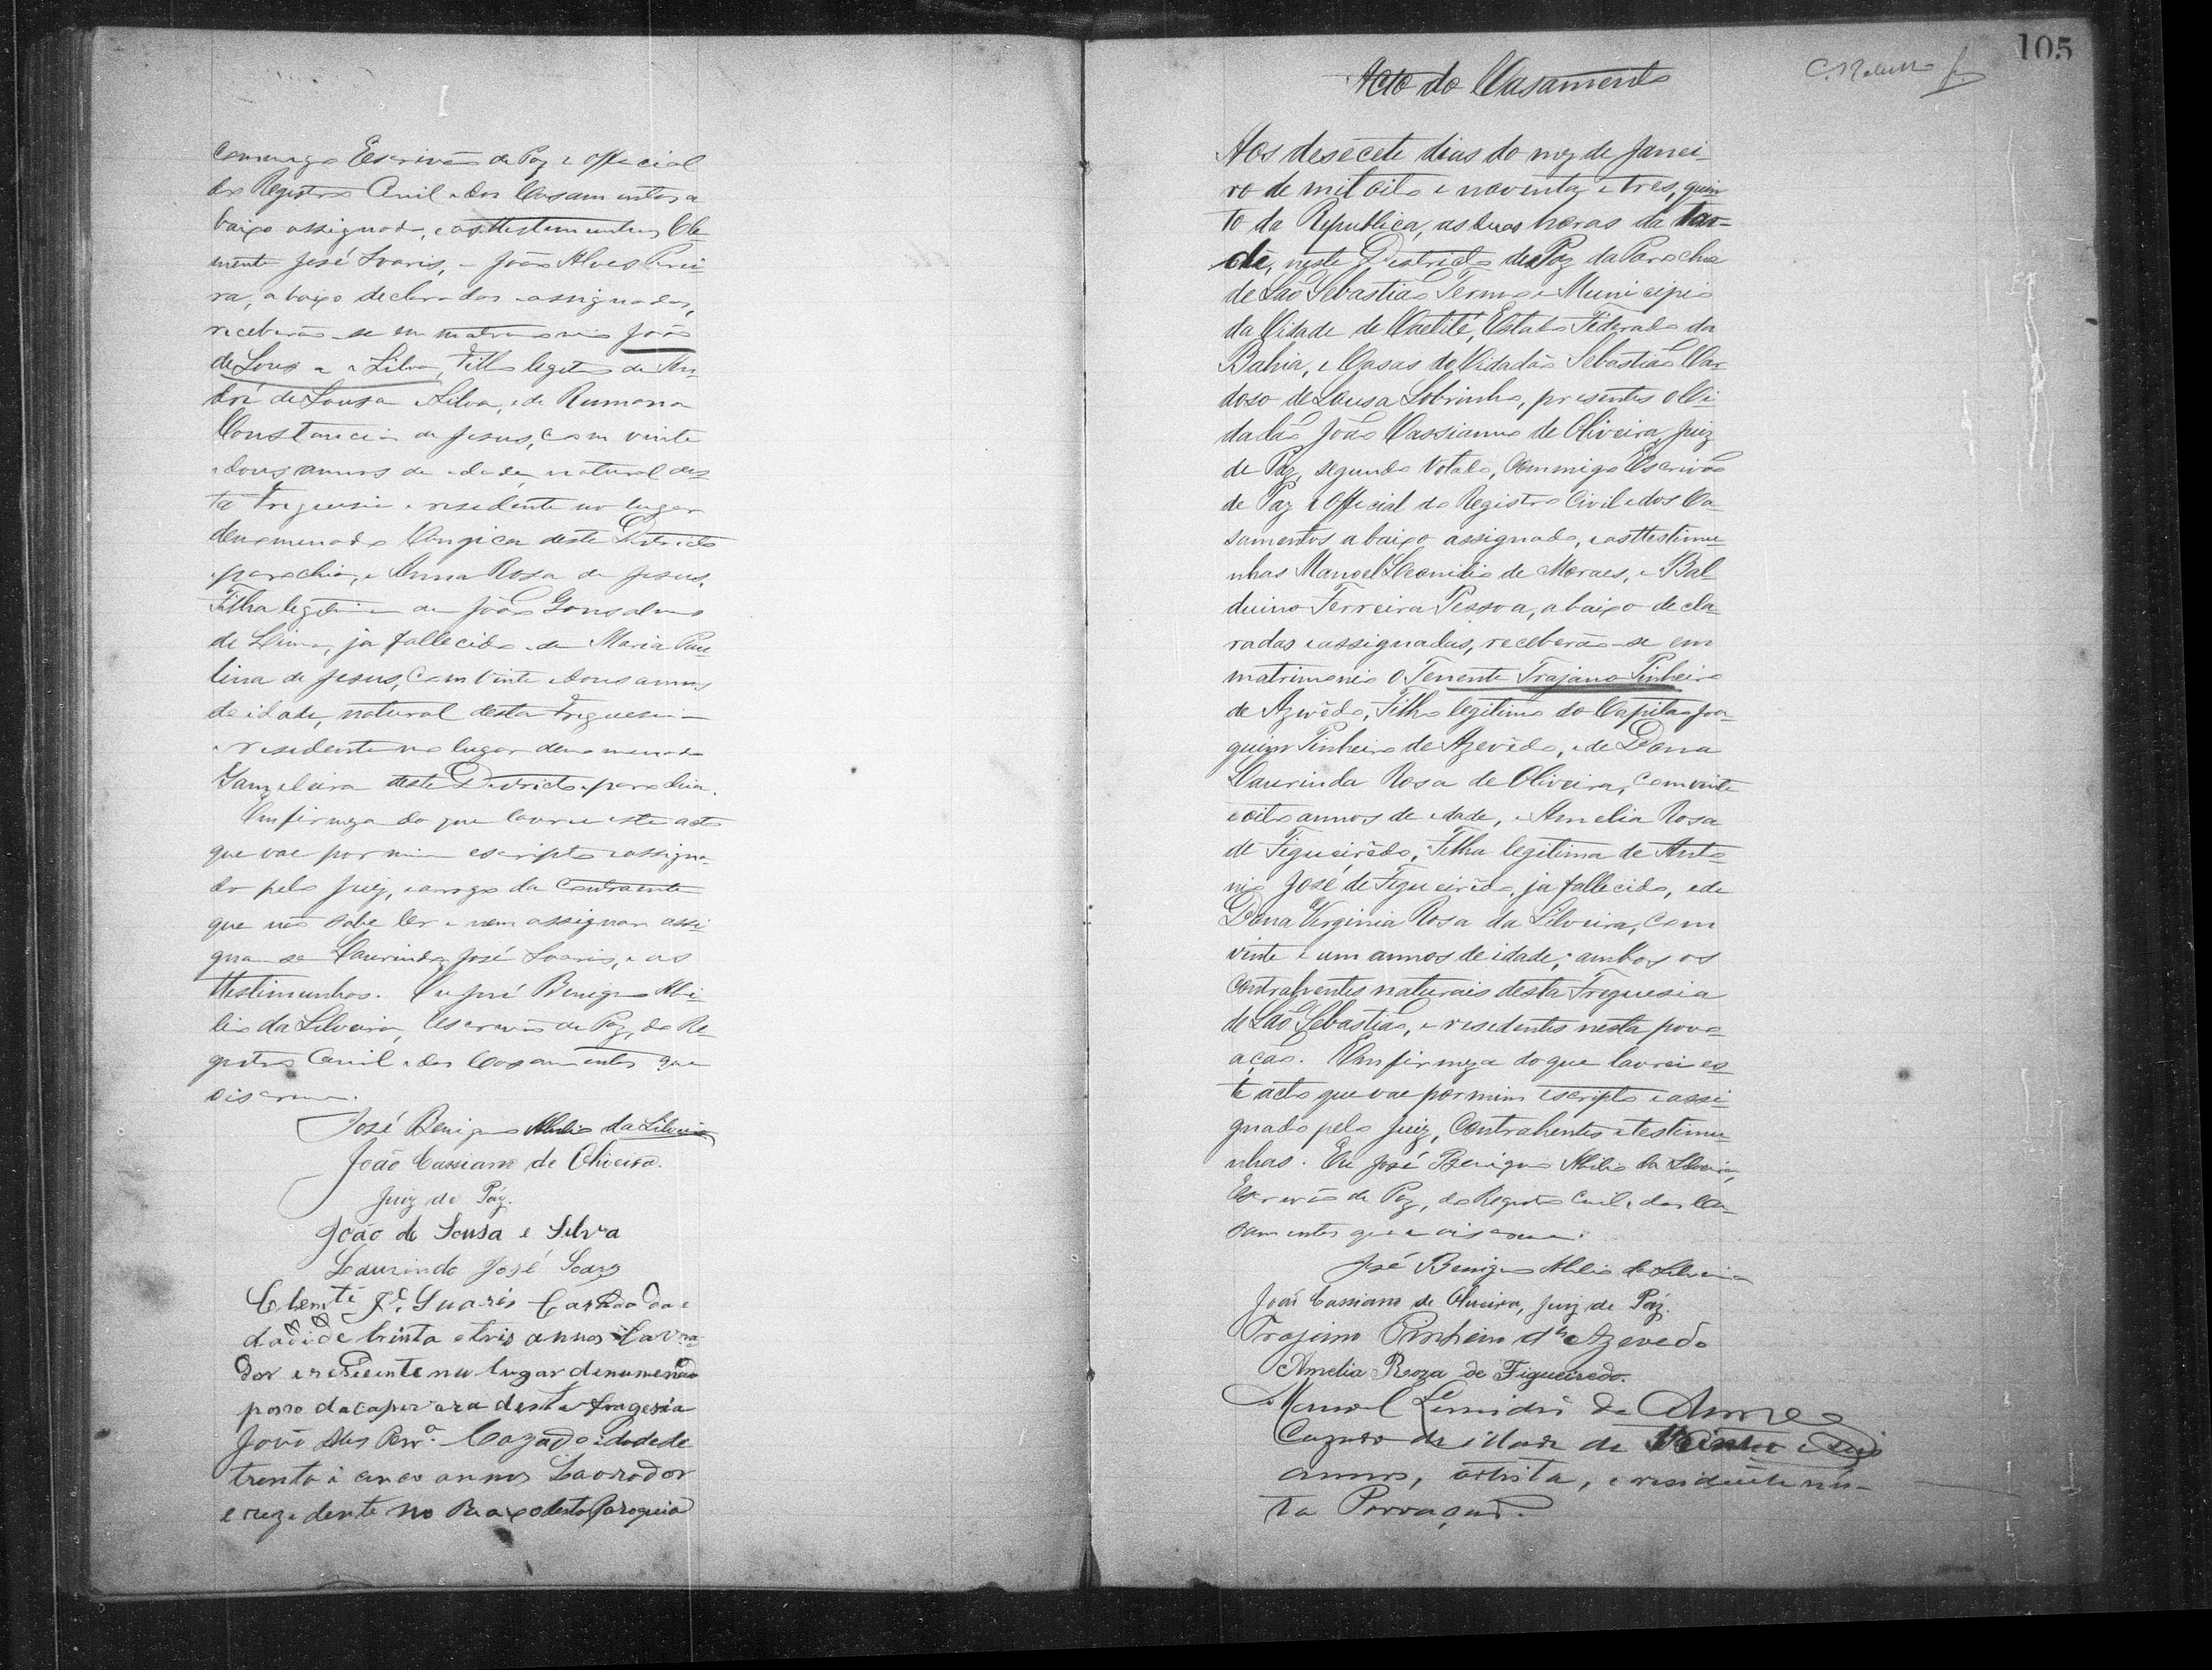 commigo Escrivão de Paz e Official
do Registro Civil e dos Casamentos a
baixo assignado, e asttestemunhas Cle-
mente José Soares, e João Alves Perei-
ra, abaixo declarados e assignados,
receberão-se em matrimonio João
de Sousa e Silva, Filho legitimo de An-
dré de Sousa e Silva, e de Rumana
Constancia de Jesus, com vinte
e dous annos de edade, natural des-
ta Freguesia e residente no lugar
denomenado Cangica deste Districto
e parochia, e Anna Rosa de Jesus,
Filha legitima de João Gonsalves
de Lima, ja fallecido e de Maria Pau-
lina de Jesus, com vinte e dous annos
de idade, natural desta Freguesia
e residente no lugar denomenado
Gamelleira deste Districto e parochia.
Em firmeza do que lavrei este acto
que vae por mim escripto e assigna-
do pelo Juiz, e arogo da Contraente
que não sabe ler e nem assignar assi-
gna-se Laurindo José Soares, e as
ttestimunhas. Eu José Benigno Abi-
lio da Silveira, Escrivão de Paz, do Re-
gistro Civil e dos Casamentos que
oiscrevi.
José Benigno Abilio da Silveira
João Cassiano de Oliveira.
Juiz de Paz.
João de Sousa e Silva
Laurindo José Soares
Clemti Jé. Suaris Cazado da e
dadi de trinta e tris annos Lavra-
dor e reseente nu lugar denumenado
posso da caper ara desta fragesia
João Als Perra. Cazado idade de
trenta i cinco annos Lavrador
e rezedente no Baxo desta Paroquia
105
Acto do Casamento
Aos desecete dias do mez de Janei-
ro de mil oito e noventa e tres, quin
to da Republica, as duas horas da tar-
de, neste Districto de Paz da Parochia
de São Sebastião Termo e Municipio
da Cidade de Caetité, Estado Federado da
Bahia, e Casas do Cidadão Sebastião Car-
doso de Sousa Sobrinho, presentes o Ci-
dadão João Cassianno de Oliveira, Juiz
de Paz, segundo Votado, Commigo Escrivão
de Paz e Official do Registro Civil e dos Ca-
samentos abaixo assignado, e asttestimu-
nhas Manoel Leonidio de Moraes, e Bal-
duino Ferreira Pessoa, abaixo decla-
radas e assignadas, receberão-se em
matrimonio o Tenente Trajano Pinheiro
de Azevêdo, Filho legitimo do Capitão Joa-
quim Pinheiro de Azevêdo, e de Dona
Laurinda Rosa de Oliveira, com vinte
e oito annos de edade, e Amelia Rosa
de Figueirêdo, Filha legitima de Anto-
nio José de Figueirêdo, ja fallecido, e de
Dona Virginia Rosa da Silveira, com
vinte e um annos de idade; ambos os
Contrahentes naturais desta Freguesia
de São Sebastião, e residentes nesta povo-
ação. Em firmeza do que lavrei es-
te acto que vae por mim escripto e assi-
gnado pelo Juiz, Contrahentes e testimu-
nhas. Eu José Benigno Abilio da Silveira,
Escrivão de Paz, do Registro Civil e dos Ca-
samentos que o oiscrevi.
José Benigno Abilio da Silveira
João Cassiano de Oliveira, Juiz de Paz.
Trajano Pinheiro de Azevedo
Amelia Roza de Figueiredo.
Manoel Leonidio de
Cazado de idade de Vinte e seis
annos, artista, e residente nes-
ta Povoação.